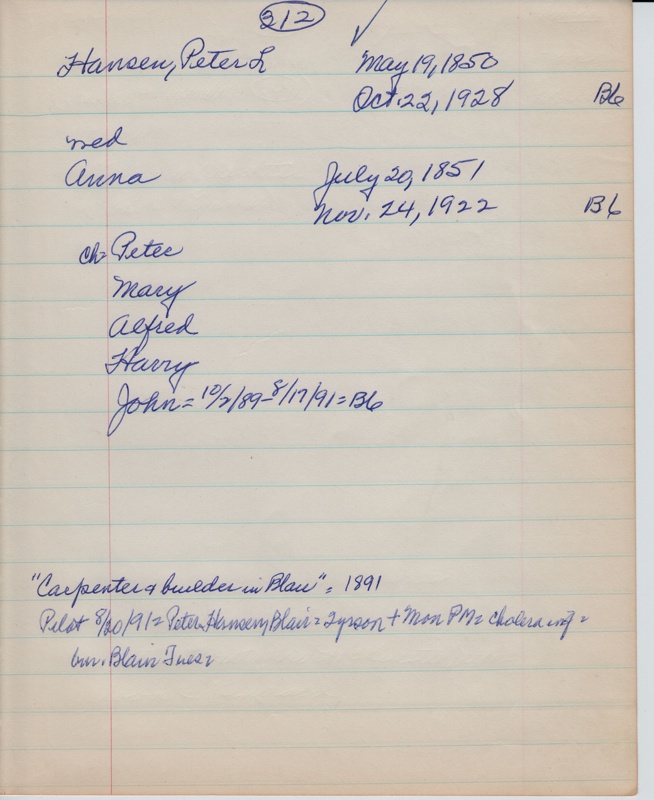 312
Hansen, Peter L May 19, 1850
Oct. 22, 1928 B6
med
Anna July 20, 1851
Nov. 24, 1922 B6
ch= Peter
Mary
Alfred
Harry
John = 10/2/89-8/17/91 = B6
"Carpenter & builder in Blair" = 1891
Pilot 8/20/91 = Peter Hansen, Blair = 2yr son + Mon PM = cholera inf =
bur. Blair Tues =